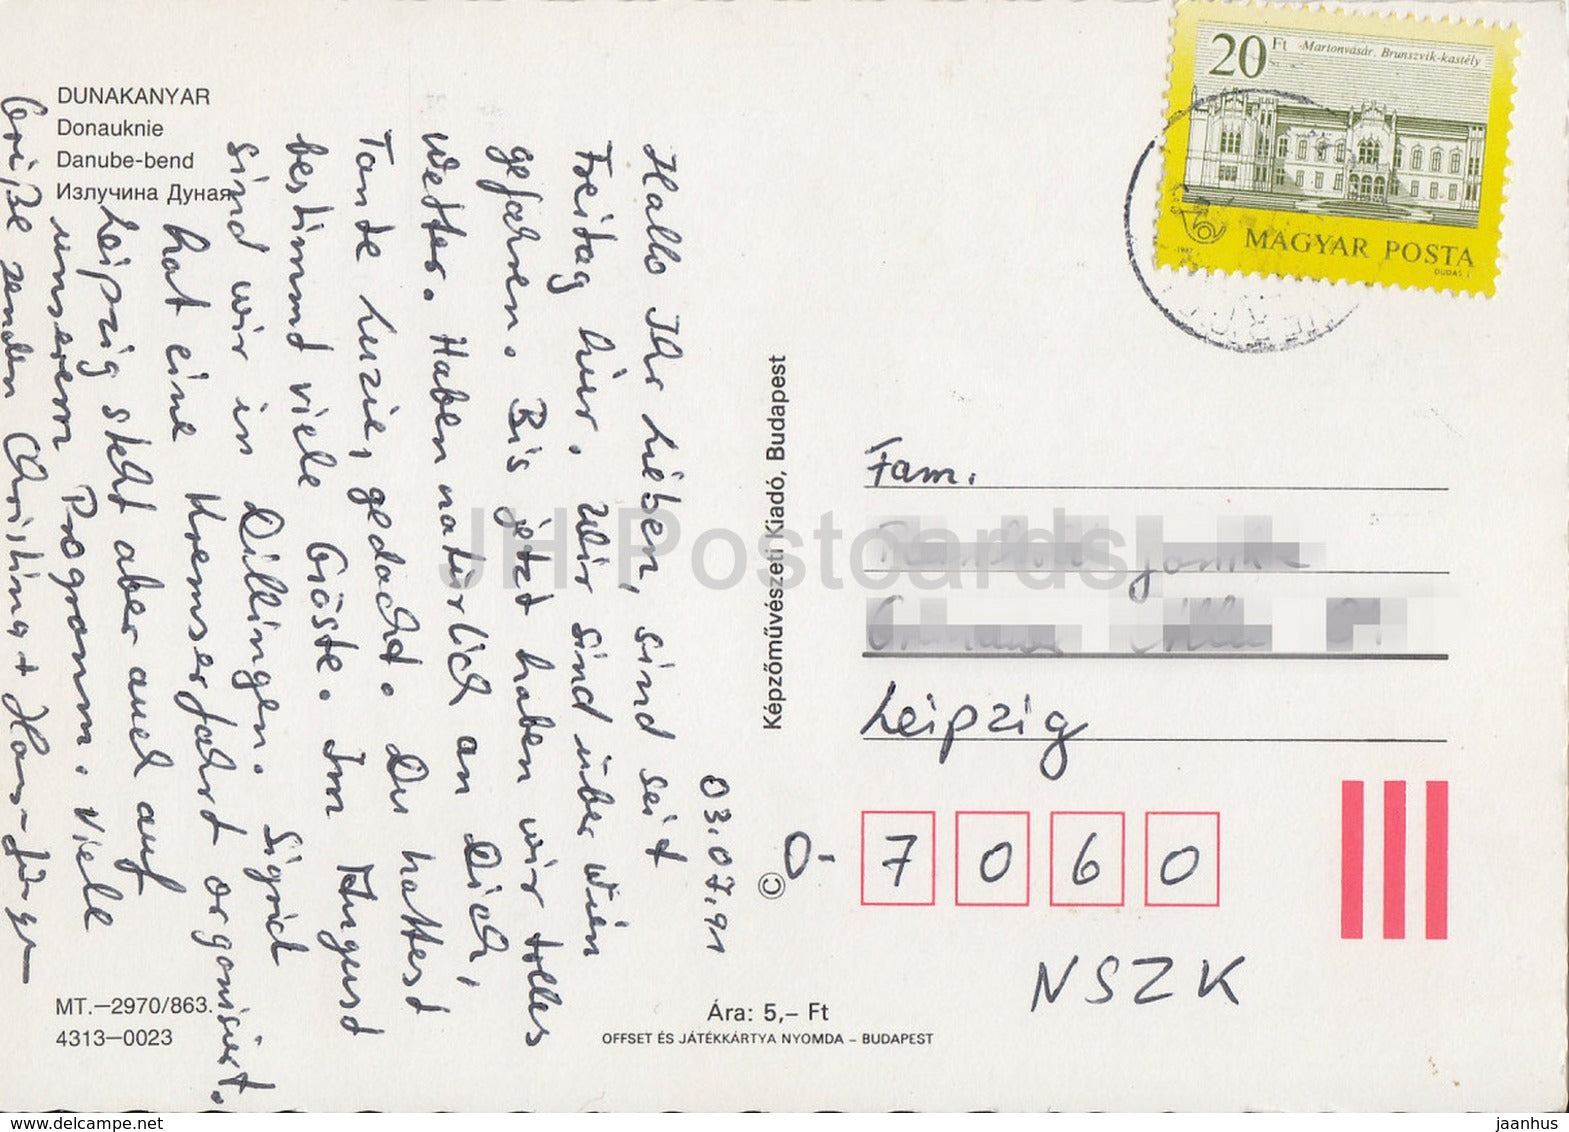 DUNAKANYAR
Donauknie
Danube-bend
Излучина Дуная
03.07.91
Hallo Ihr Lieben, sind seit
Freitag hier. Wir sind über Wien
gefahren. Bis jetzt haben wir tolles
Wetter. Haben natürlich an Dich,
Tante Luzie, gedacht. Du hattest
bestimmt viele Gäste. Im August
sind wir in Dillingen. Sigrid
hat eine Kremserfahrt organisiert.
Leipzig steht aber auch auf
unserem Programm. Viele
Grüße senden Christina + Hans-Jürgen
MT.—2970/863.
4313—0023
Képzőművészeti Kiadó, Budapest
©
Ára: 5,– Ft
OFFSET ÉS JÁTÉKKÁRTYA NYOMDA – BUDAPEST
20 Ft -Martonvásár, Brunszvik-kastély
1987
MAGYAR POSTA
DUDÁS L
Fam.
Leipzig
O- 7 0 6 0
NSZK
JH Postcards
www.delcampe.net
jaanhus